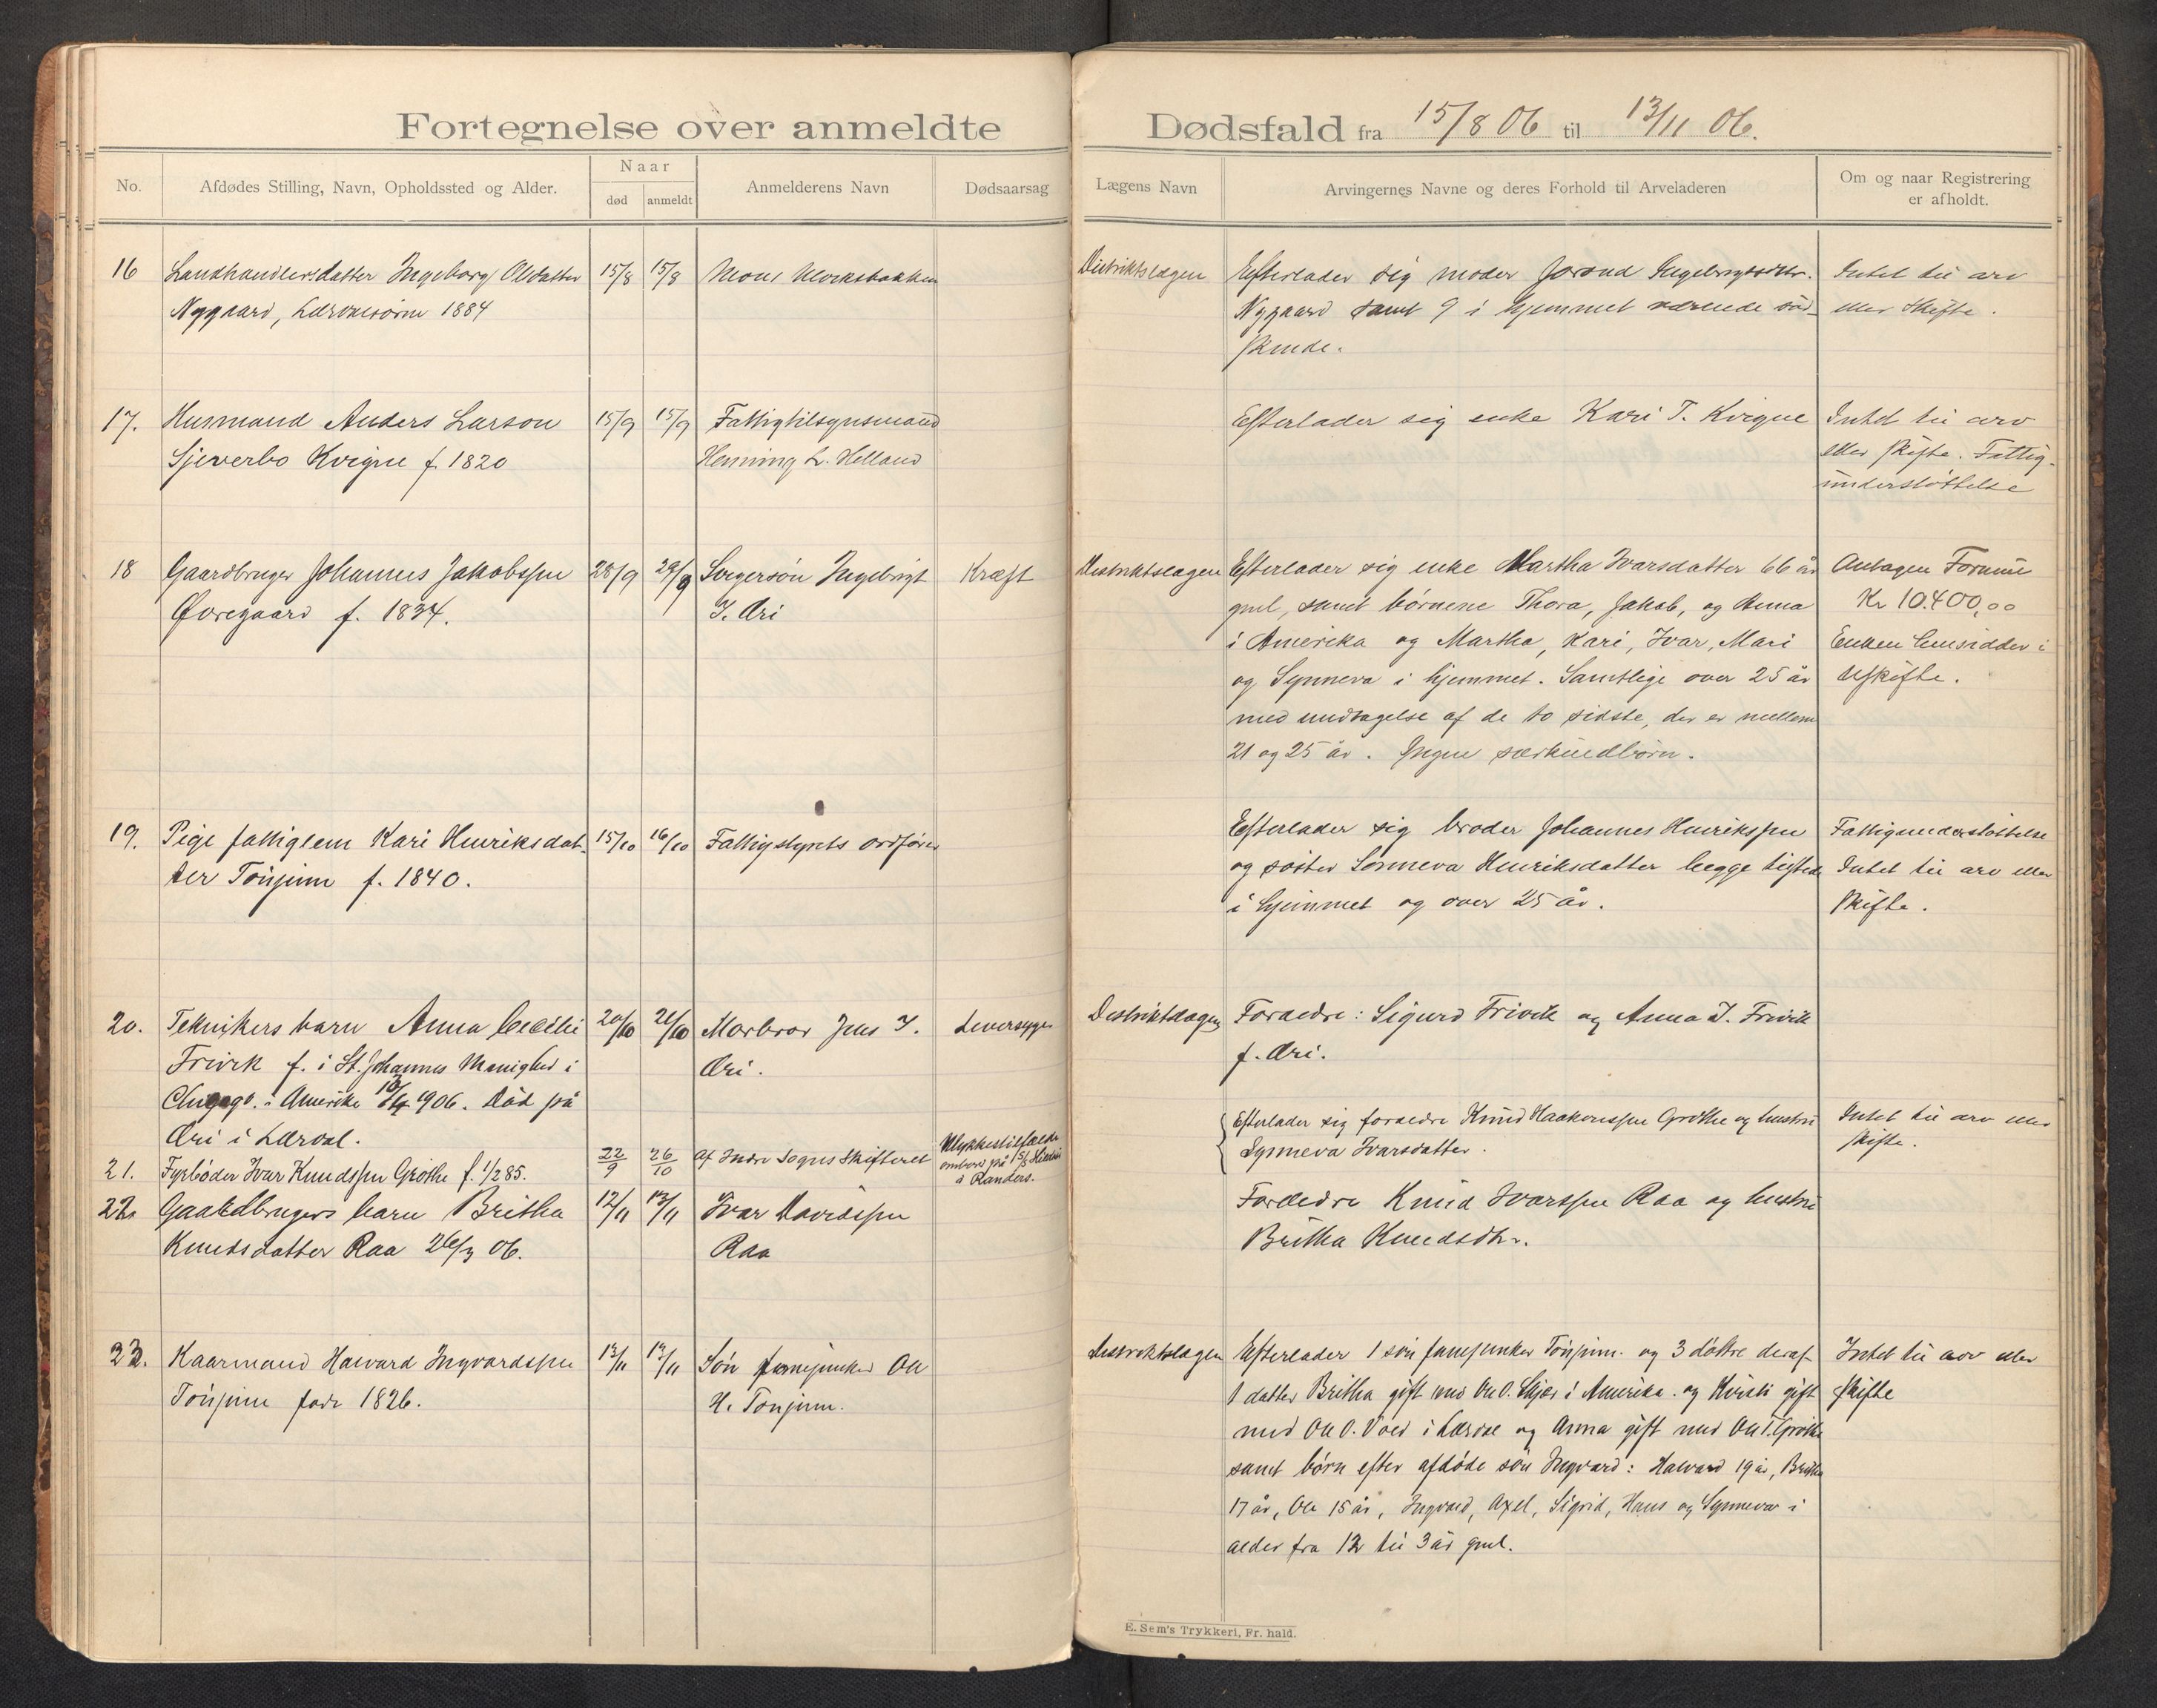 Fortegnelse over anmeldte
Dødsfald fra 15/8 06 til 13/11 06.
No.
Afdødes Stilling, Navn, Opholdssted og Alder.
Naar
død
anmeldt
Anmelderens Navn
Dødsaarsag
Lægens Navn
Arvingernes Navne og deres Forhold til Arveladeren
Om og naar Registrering
er afholdt.
16
Landhandlersdatter Ingeborg Olsdatter
Nygaard, Lærdalsøren 1884
15/8
15/8
Mons
Distriktslægen
Efterlader sig moder Jorand Ingebrigtsdtr.
Nygaard samt 9 i hjemmet værende sød-
skende.
Intet til arv
eller skifte.
17.
Husmand Anders Larson
Sjeverbo Kvigne f. 1820
15/9
15/9
Fattigtilsynsmand
Henning L. Helland
Efterlader sig enke Kari T. Kvigne
Intet til arv
eller skifte. Fattig-
understøttelse
18
Gaardbruger Johannes Jakobssen
Øvregaard f. 1834.
28/9
29/9
Svigersøn Ingebrigt
J. Øri
Kræft
Distriktslægen
Efterlader sig enke Martha Ivarsdatter 66 år
gml, samt børnene Thora, Jakob, og Anna
i Amerika og Martha, Kari, Ivar, Mari
og Synneva i hjemmet. Samtlige over 25 år
med undtagelse af de to sidste, der er mellem
21 og 25 år. Ingen særkuldbørn.
Antagen Formue
Kr 10.400,00
Enken hensidder i
uskifte.
19.
Pige fattiglem Kari Henriksdat-
ter Tønjum f. 1840.
15/10
16/10
Fattigstyrets ordfører
Efterlader sig broder Johannes Henrikssen
og søster Sonneva Henriksdatter begge tilstede
i hjemmet og over 25 år.
Fattigunderstøttelse
Intet til arv eller
skifte.
20.
Teknikers barn Anna Cecilie
Frivik f. i St. Johannes Menighed i
Chicago. i Amerika 906. Død på
Øri i Lærdal.
20/10
21/10
Morbror Jens J.
Øri.
Leversyge
Distriktslægen
Forældre: Sigurd Frivik og Anna J. Frivik
f. Øri.
21.
Fyrbøder Ivar Knudssen Grøthe f. 1/2 85.
22/9
26/10
Af Indre Sogns Skifteret
Ulykkestilfælde
ombord på S/S
i Randers.
Efterlader sig forældre Knud Haakonssen Grøthe og hustru
Synneva Ivarsdatter.
Intet til arv eller
skifte.
22.
Gaardbrugers barn Britha
Knudsdatter Raa 26/3 06.
12/11
13/11
Ivar Davidssen
Raa
Forældre Knud Ivarssen Raa og hustru
Britha Knudsdtr.
23.
Kaarmand Halvard Ingvardssen
Tønjum født 1826.
13/11
13/11
Søn fanejunker Ole
H. Tønjum.
Distriktslægen
Efterlader 1 søn fanejunker Tønjum. og 3 døttre deraf
1 datter Britha gift med Ole O. Skjær i Amerika. og Kirsti gift
med Ole O. Vold i Lærdal og Anna gift med Ole T. Grøthe
samt børn efter afdøde søn Ingvard: Halvard 19 år, Britha
17 år, Ole 15 år, Ingvald, Axel, Sigrid, Hans og Synneva i
alder fra 12 til 3 år gml.
Intet til arv eller
skifte
E. Sem's Trykkeri, Fr. hald.